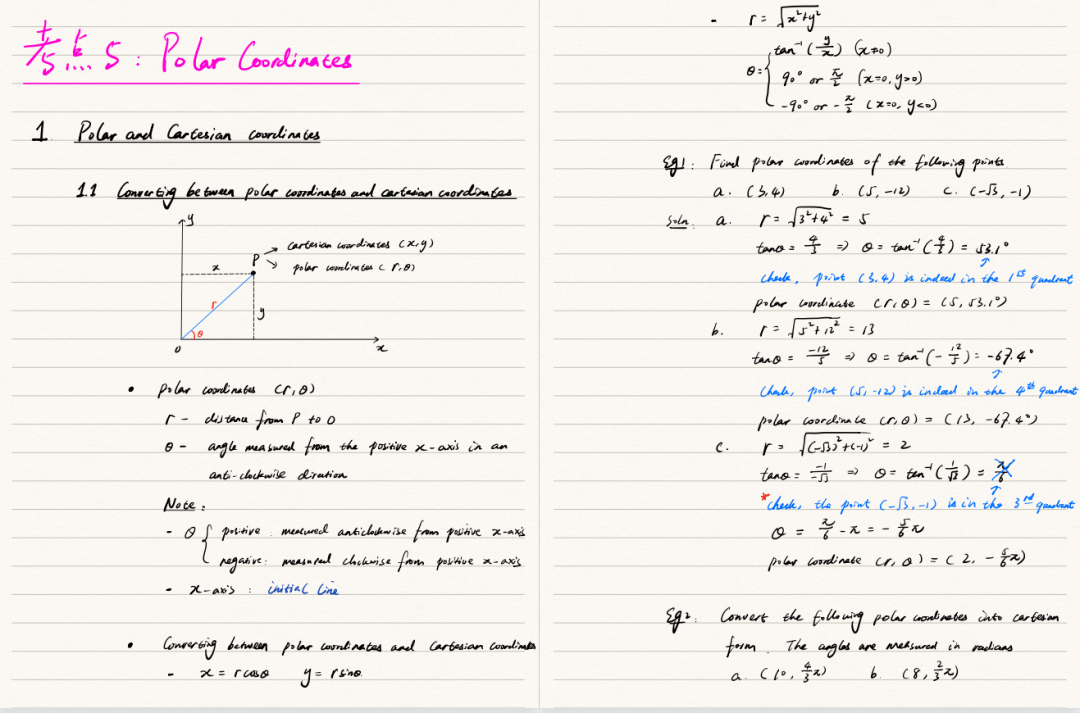 考点5: Polar Coordinates
1 Polar and Cartesian coordinates
1.1 Converting between polar coordinates and cartesian coordinates
y
x
P
cartesian coordinates (x, y)
polar coordinates (r, θ)
r
y
θ
0
x
• polar coordinates (r, θ)
r - distance from P to O
θ - angle measured from the positive x-axis in an
anti-clockwise direction
Note:
- θ { positive: measured anticlockwise from positive x-axis
negative: measured clockwise from positive x-axis
- x-axis: initial line
• Converting between polar coordinates and Cartesian coordinates
- x = r cosθ y = r sinθ
- r = √(x²+y²)
θ = { tan⁻¹(y/x) (x≠0)
90° or π/2 (x=0, y>0)
-90° or -π/2 (x=0, y<0)
Eg1: Find polar coordinates of the following points
a. (3,4) b. (5, -12) c. (-√3, -1)
Soln a. r = √(3²+4²) = 5
tanθ = 4/3 ⇒ θ = tan⁻¹(4/3) = 53.1°
check, point (3,4) is indeed in the 1st quadrant
polar coordinate (r, θ) = (5, 53.1°)
b. r = √(5²+12²) = 13
tanθ = -12/5 ⇒ θ = tan⁻¹(-12/5) = -67.4°
check, point (5, -12) is indeed in the 4th quadrant
polar coordinate (r, θ) = (13, -67.4°)
c. r = √((-√3)²+(-1)²) = 2
tanθ = -1/-√3 ⇒ θ = tan⁻¹(1/√3) = π/6
* check, the point (-√3, -1) is in the 3rd quadrant
θ = π/6 - π = -5/6 π
polar coordinate (r, θ) = (2, -5/6 π)
Eg2: Convert the following polar coordinates into cartesian
form. The angles are measured in radians
a. (10, 4/3 π) b. (8, 2/3 π)